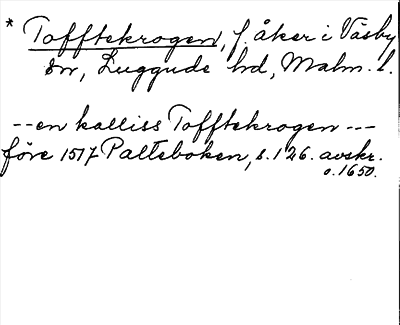 * Tofftekrogen, f. åker i Väsby
sn, Luggude hd, Malm. l.
-- en kalliss Tofftekrogen ---
före 1517 Palteboken, s. 126. avskr.
o. 1650.